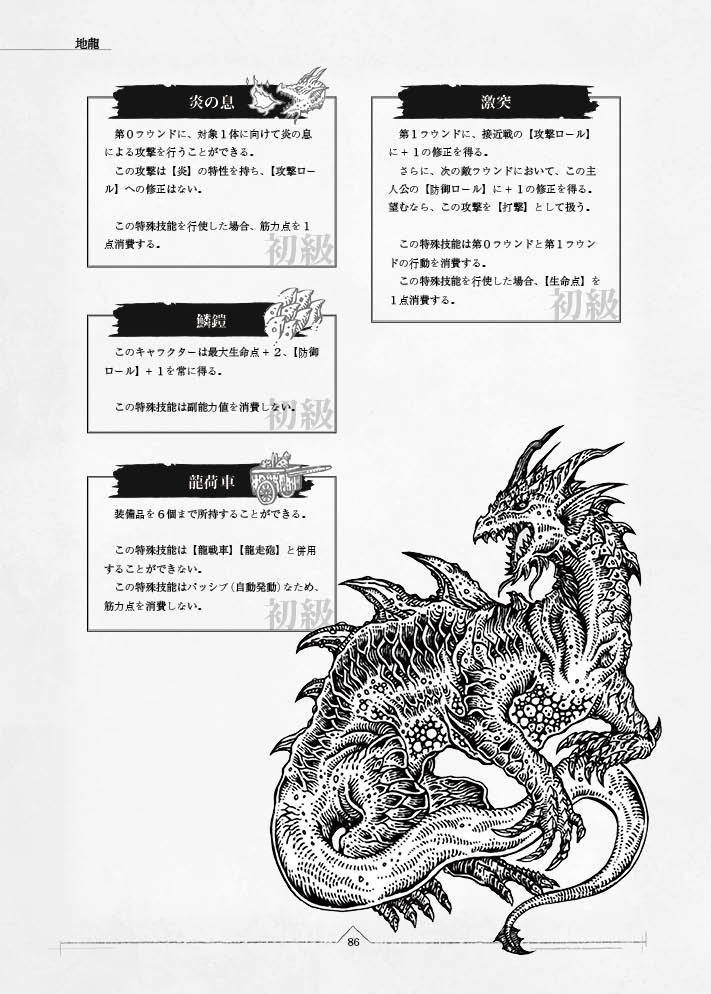 地龍
炎の息
第０ラウンドに、対象１体に向けて炎の息
による攻撃を行うことができる。
この攻撃は【炎】の特性を持ち、【攻撃ロー
ル】への修正はない。
この特殊技能を行使した場合、筋力点を１
点消費する。
初級
鱗鎧
このキャラクターは最大生命点＋２、【防御
ロール】＋１を常に得る。
この特殊技能は副能力値を消費しない。
初級
龍荷車
装備品を６個まで所持することができる。
この特殊技能は【龍戦車】【龍走砲】と併用
することができない。
この特殊技能はパッシブ（自動発動）なため、
筋力点を消費しない。
初級
激突
第１ラウンドに、接近戦の【攻撃ロール】
に＋１の修正を得る。
さらに、次の敵ラウンドにおいて、この主
人公の【防御ロール】に＋１の修正を得る。
望むなら、この攻撃を【打撃】として扱う。
この特殊技能は第０ラウンドと第１ラウン
ドの行動を消費する。
この特殊技能を行使した場合、【生命点】を
１点消費する。
初級
86